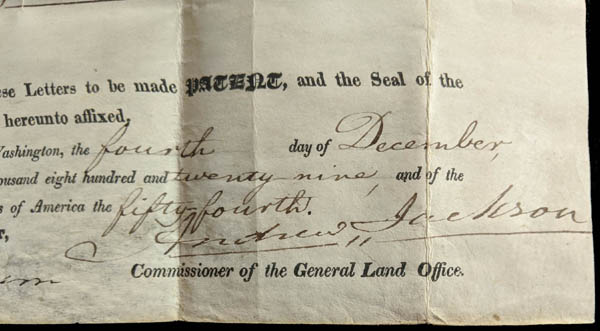 ese Letters to be made PATENT, and the Seal of the
hereunto affixed,
Washington, the fourth day of December,
ousand eight hundred and twenty nine, and of the
s of America the fifty-fourth.
r, Andrew Jackson
Commissioner of the General Land Office.